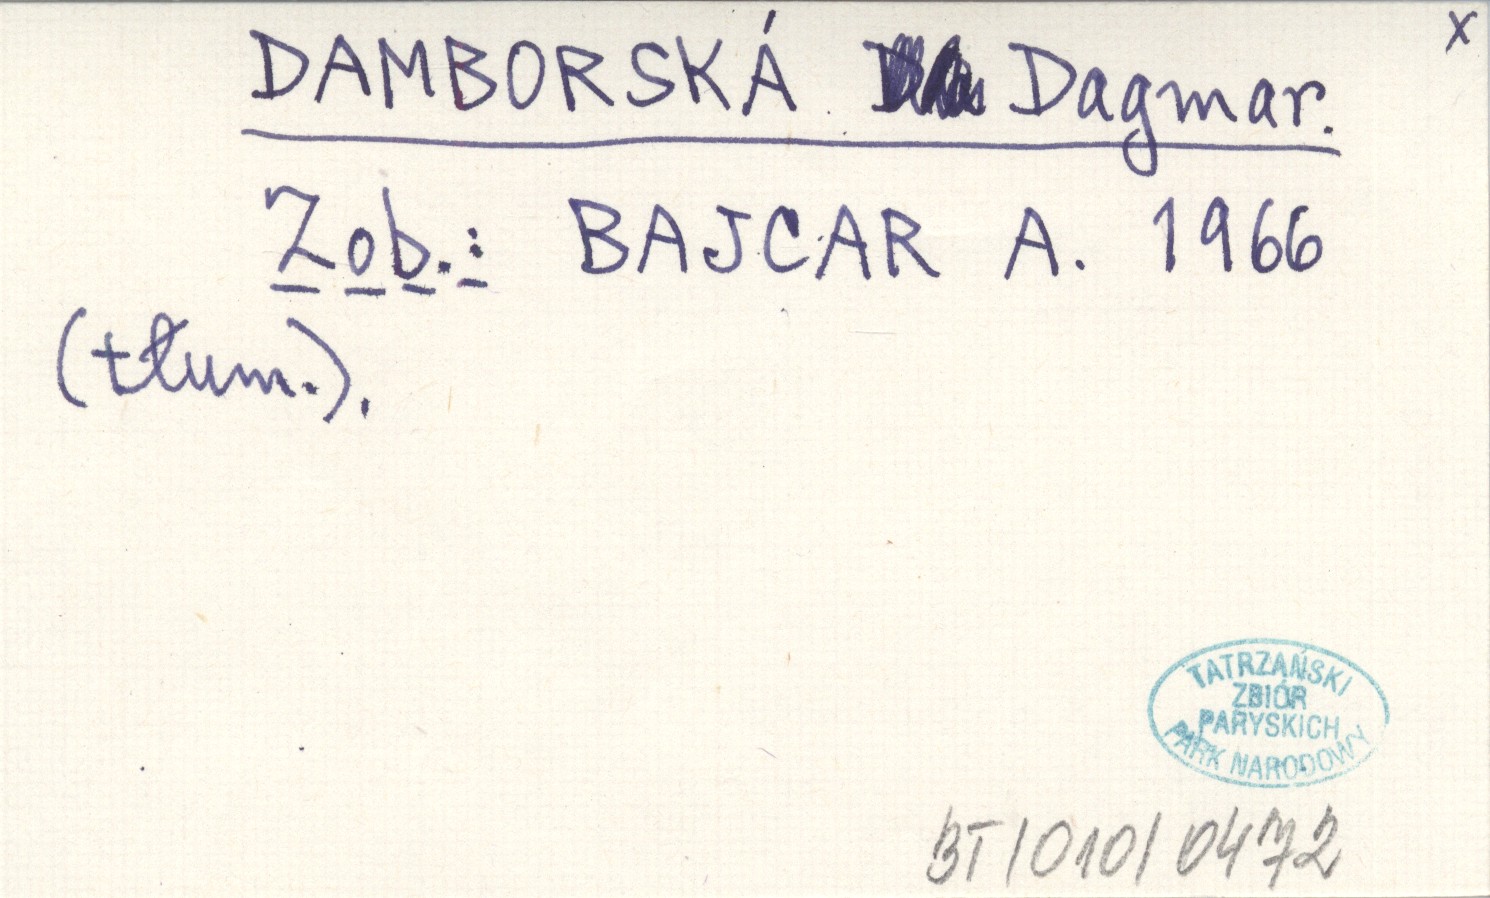 x
DAMBORSKÁ Dagmar.
Zob.: BAJCAR A. 1966
(tłum.).
TATRZAŃSKI
ZBIÓR
PARYSKICH
PARK NARODOWY
BT/010/0472